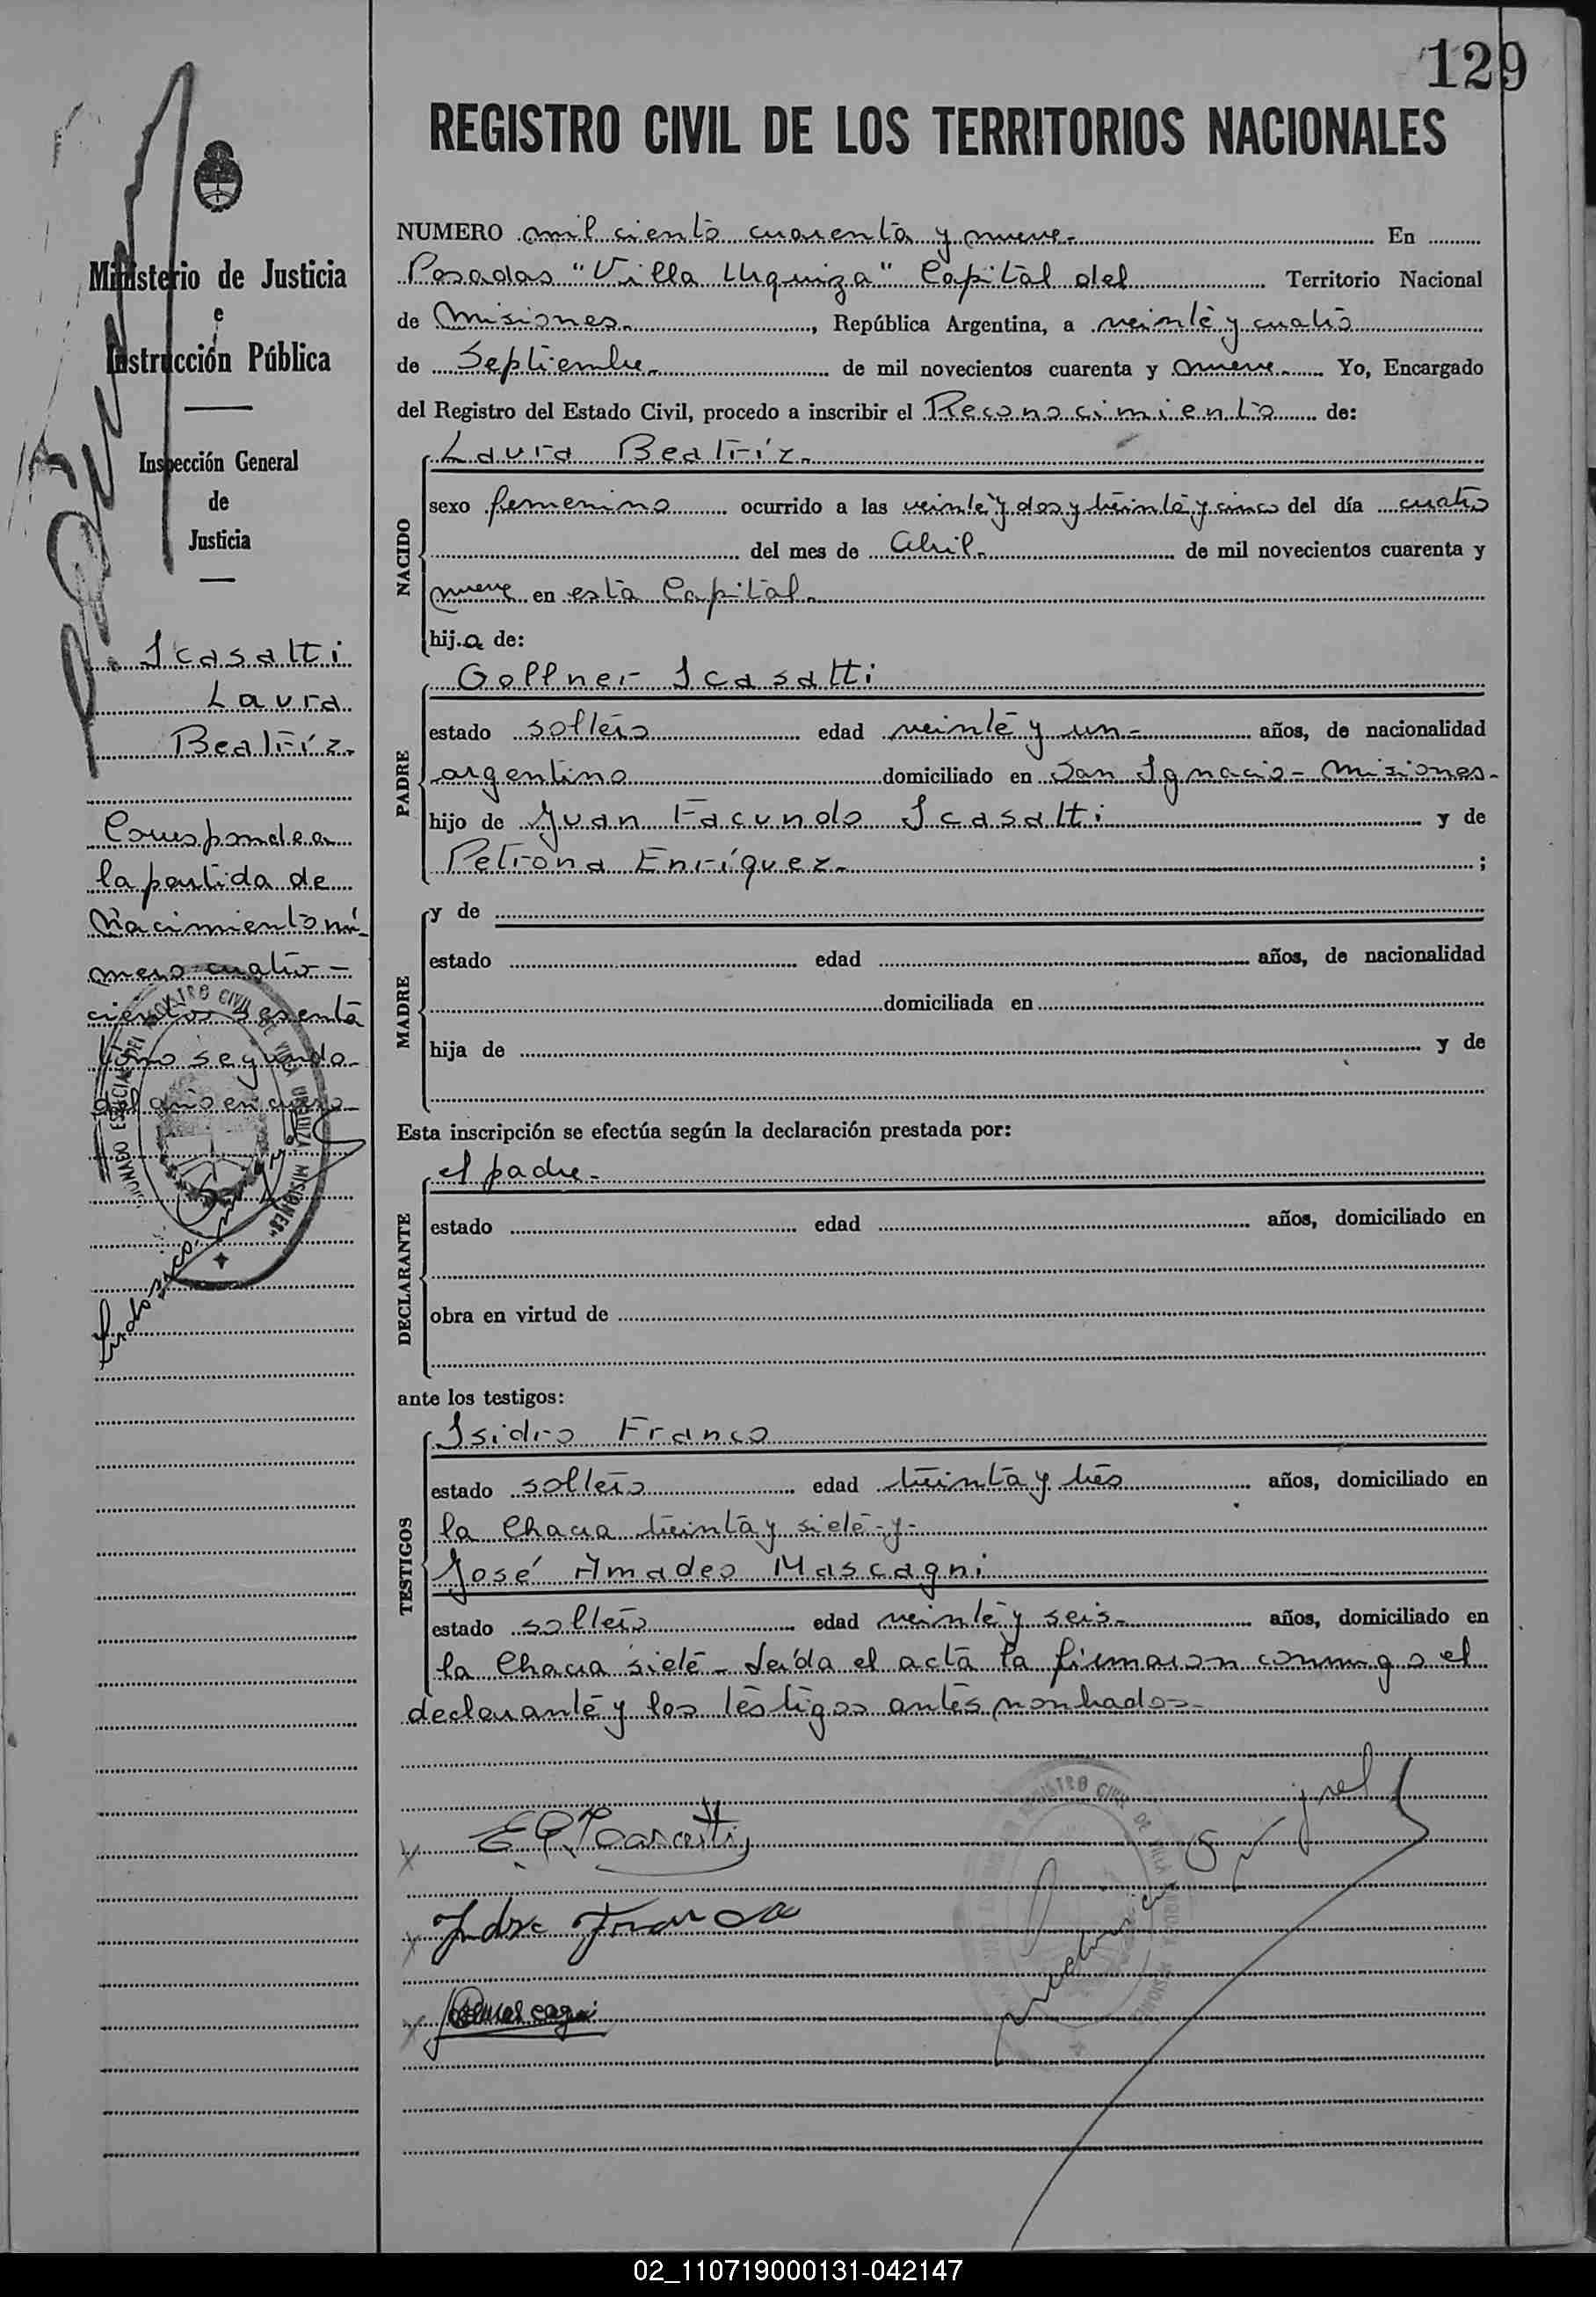 129
REGISTRO CIVIL DE LOS TERRITORIOS NACIONALES
Ministerio de Justicia
e
Instrucción Pública
Inspección General
de
Justicia
Icasatti
Laura
Beatríz.
Corresponde a
la partida de
Nacimiento nú-
mero cuatro-
cientos sesenta
tomo segundo
del año en curso
NUMERO mil ciento cuarenta y nueve.- En
Posadas "Villa Urquiza" Capital del Territorio Nacional
de Misiones.- , República Argentina, a veinte y cuatro
de Septiembre.- de mil novecientos cuarenta y nueve.- Yo, Encargado
del Registro del Estado Civil, procedo a inscribir el Reconocimiento de:
Laura Beatríz.-
NACIDO
sexo femenino ocurrido a las veinte y dos y treinta y cinco del día cuatro
del mes de Abril.- de mil novecientos cuarenta y
nueve en esta Capital.-
hija de:
Gollner Icasatti
PADRE
estado soltero edad veinte y un- años, de nacionalidad
argentino domiciliado en San Ignacio - Misiones-
hijo de Juan Facundo Icasatti y de
Petrona Enríquez.- ;
MADRE
y de
estado edad años, de nacionalidad
domiciliada en
hija de y de
Esta inscripción se efectúa según la declaración prestada por:
el padre-
DECLARANTE
estado edad años, domiciliado en
obra en virtud de
ante los testigos:
TESTIGOS
Isidro Franco
estado soltero edad treinta y tres años, domiciliado en
la Chacra treinta y siete - y -
José Amadeo Mascagni
estado soltero edad veinte y seis- años, domiciliado en
la Chacra siete - Leída el acta la firmaron conmigo el
declarante y los testigos antes nombrados-
REGISTRO CIVIL DE VILLA URQUIZA MISIONES
02_110719000131-042147